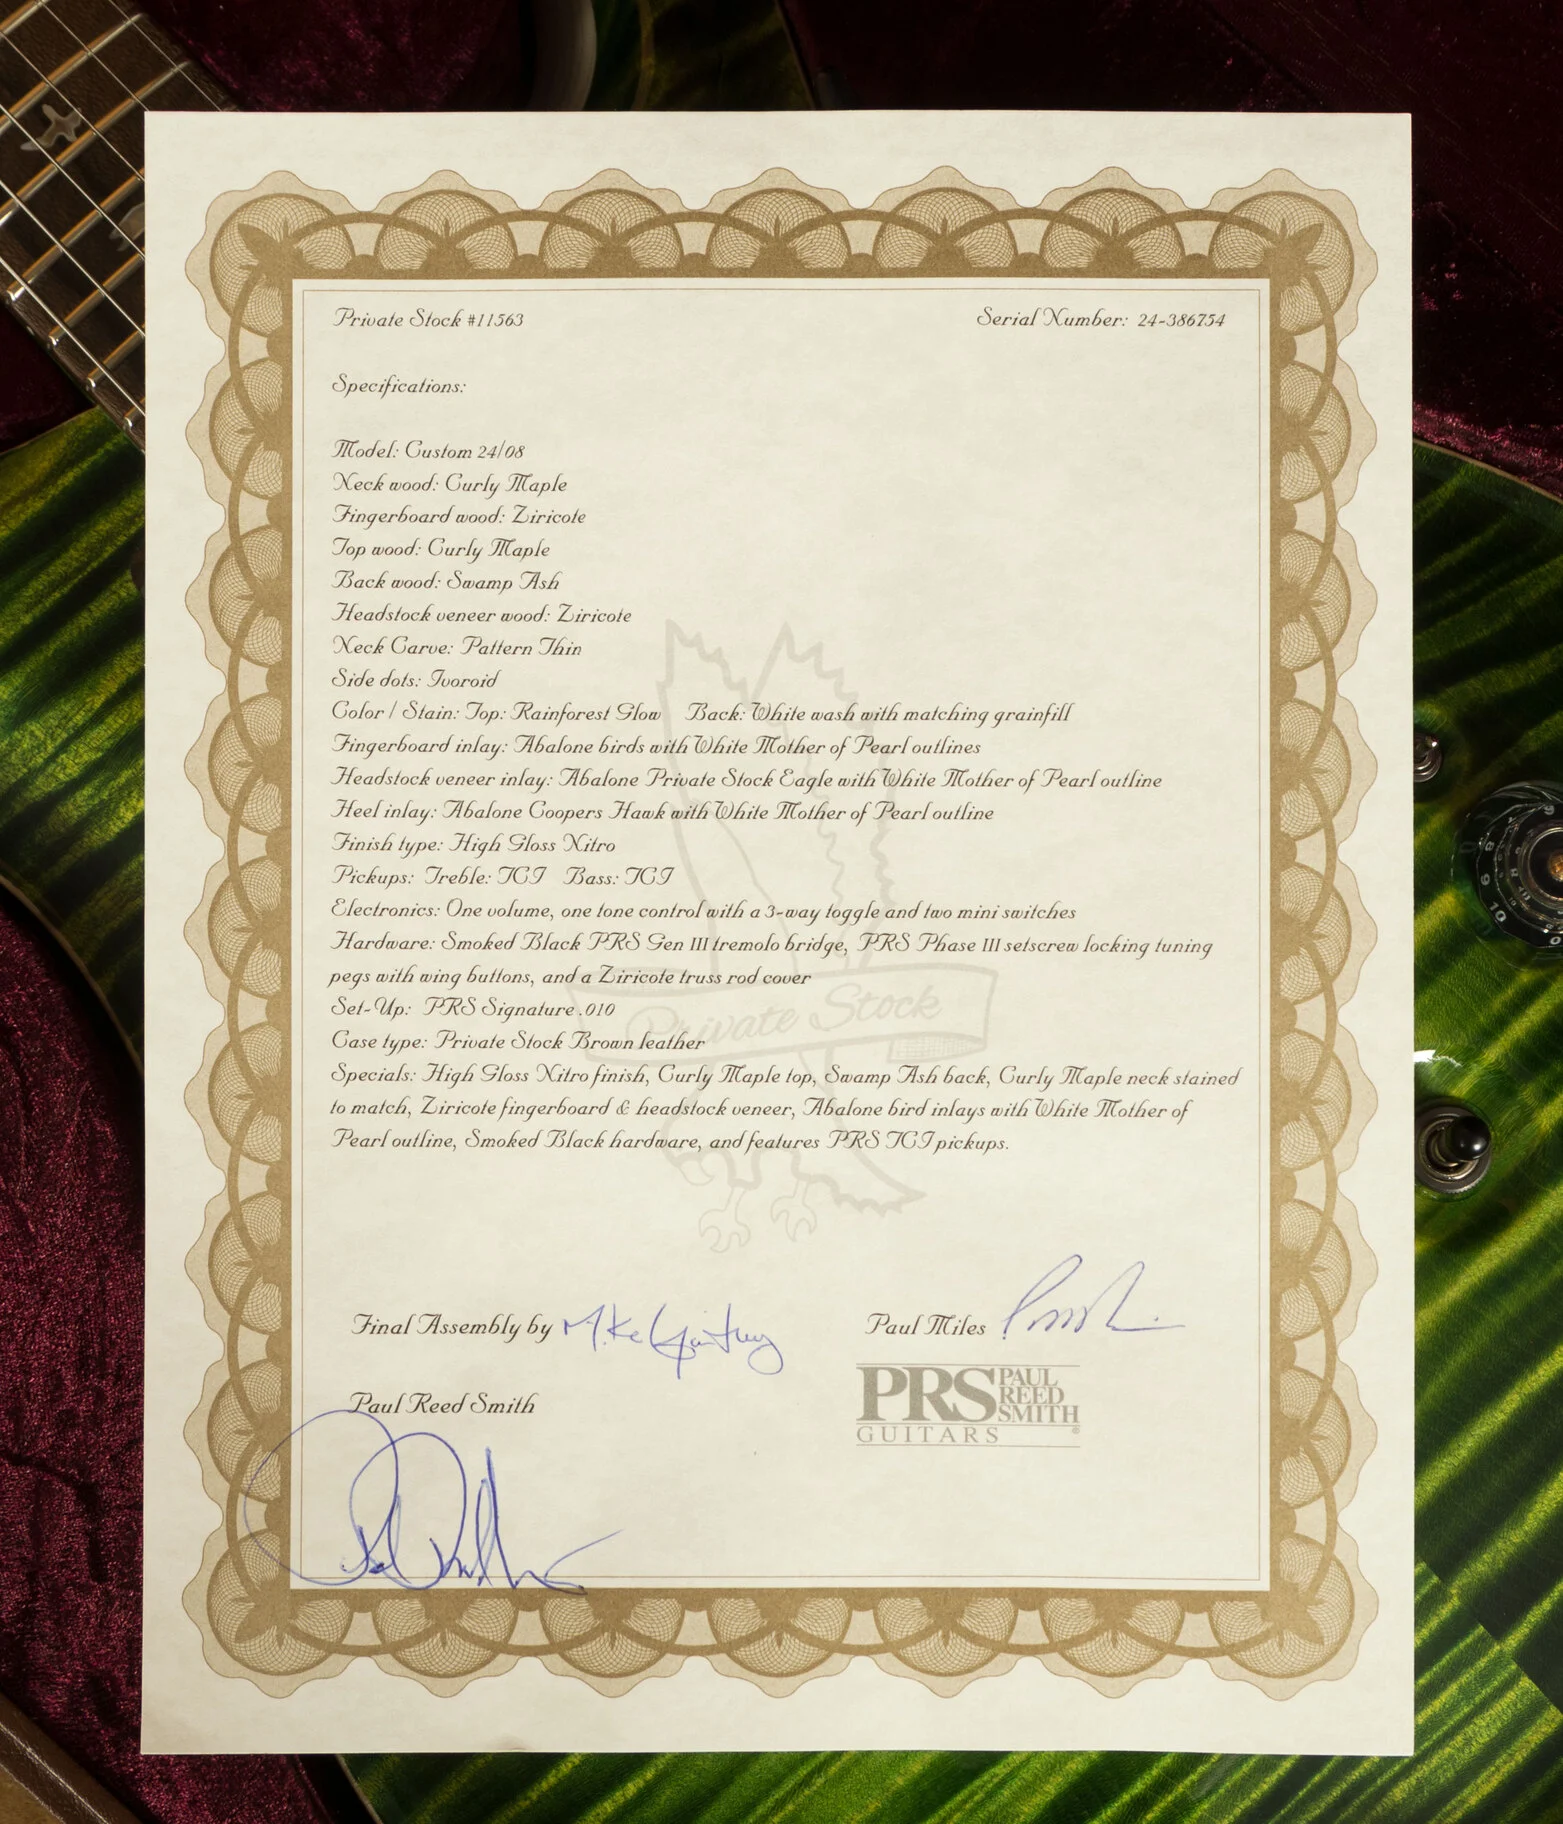 Private Stock #11563
Serial Number: 24-386754
Specifications:
Model: Custom 24/08
Neck wood: Curly Maple
Fingerboard wood: Ziricote
Top wood: Curly Maple
Back wood: Swamp Ash
Headstock veneer wood: Ziricote
Neck Carve: Pattern Thin
Side dots: Ivoroid
Color / Stain: Top: Rainforest Glow Back: White wash with matching grainfill
Fingerboard inlay: Abalone birds with White Mother of Pearl outlines
Headstock veneer inlay: Abalone Private Stock Eagle with White Mother of Pearl outline
Heel inlay: Abalone Coopers Hawk with White Mother of Pearl outline
Finish type: High Gloss Nitro
Pickups: Treble: TCI Bass: TCI
Electronics: One volume, one tone control with a 3-way toggle and two mini switches
Hardware: Smoked Black PRS Gen III tremolo bridge, PRS Phase III setscrew locking tuning
pegs with wing buttons, and a Ziricote truss rod cover
Set-Up: PRS Signature .010
Private Stock
Case type: Private Stock Brown leather
Specials: High Gloss Nitro finish, Curly Maple top, Swamp Ash back, Curly Maple neck stained
to match, Ziricote fingerboard & headstock veneer, Abalone bird inlays with White Mother of
Pearl outline, Smoked Black hardware, and features PRS TCI pickups.
Final Assembly by Mike
Paul Miles
PRS PAUL REED SMITH
GUITARS
Paul Reed Smith